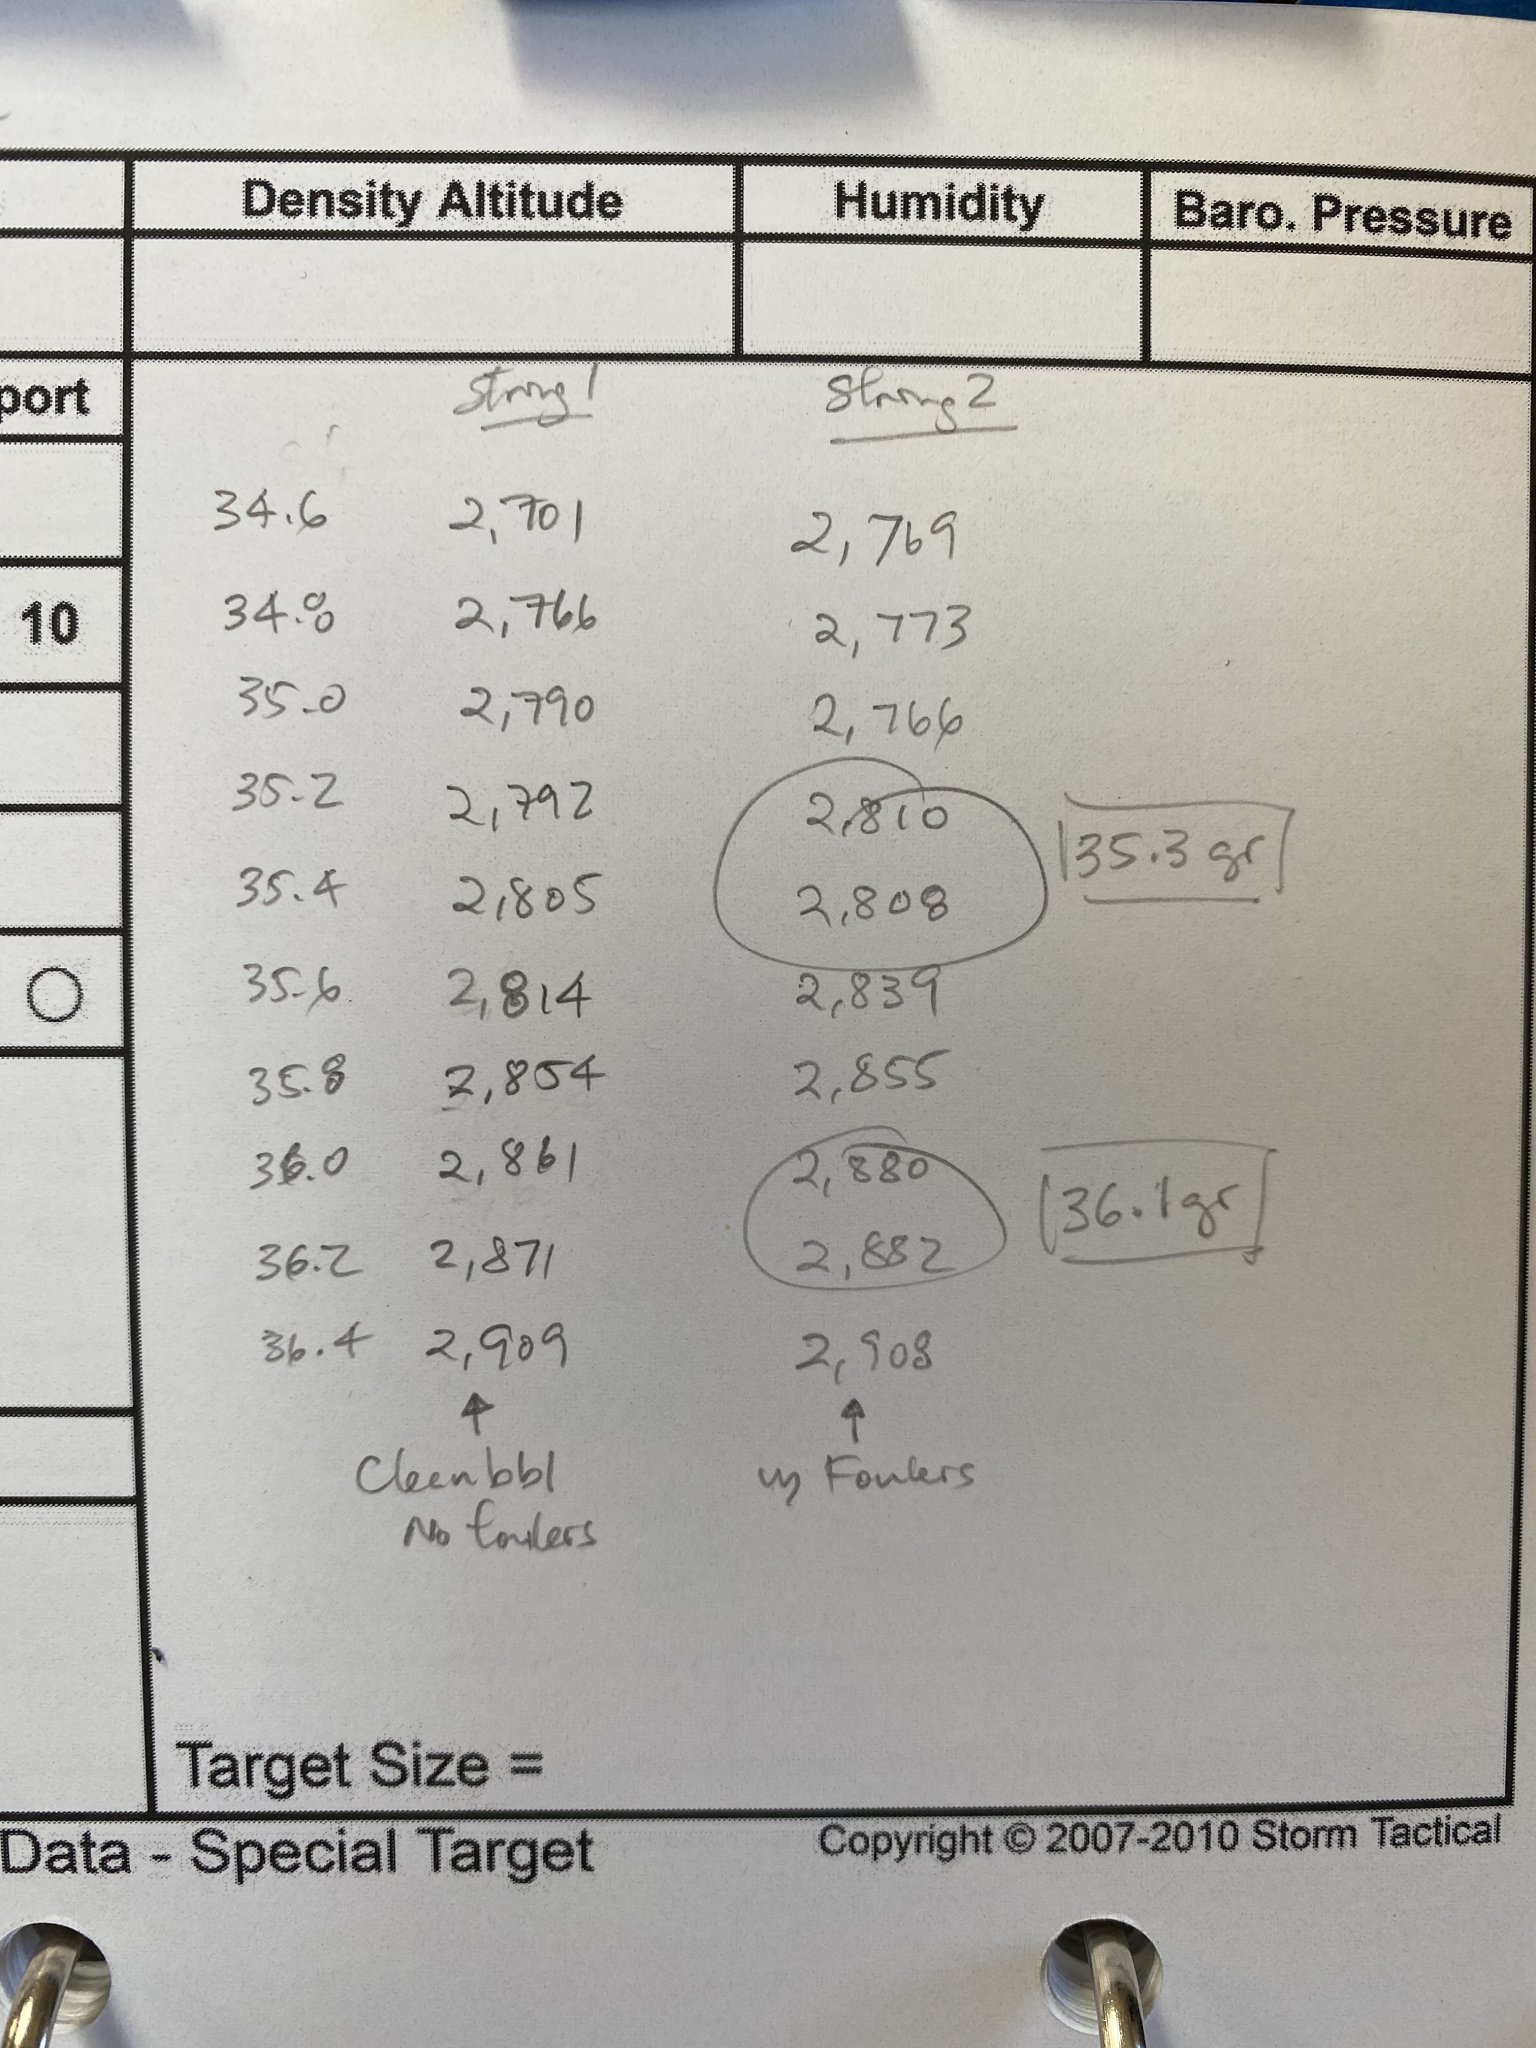 Density Altitude Humidity Baro. Pressure
port
String 1 String 2
34.6 2,701 2,769
10 34.8 2,766 2,773
35.0 2,790 2,766
35.2 2,792 2,810
35.3 gr
35.4 2,805 2,808
35.6 2,814 2,839
35.8 2,854 2,855
36.0 2,861 2,880
36.1 gr
36.2 2,871 2,882
36.4 2,909 2,908
Clean bbl w/ Foulers
No foulers
Target Size =
Data - Special Target Copyright © 2007-2010 Storm Tactical